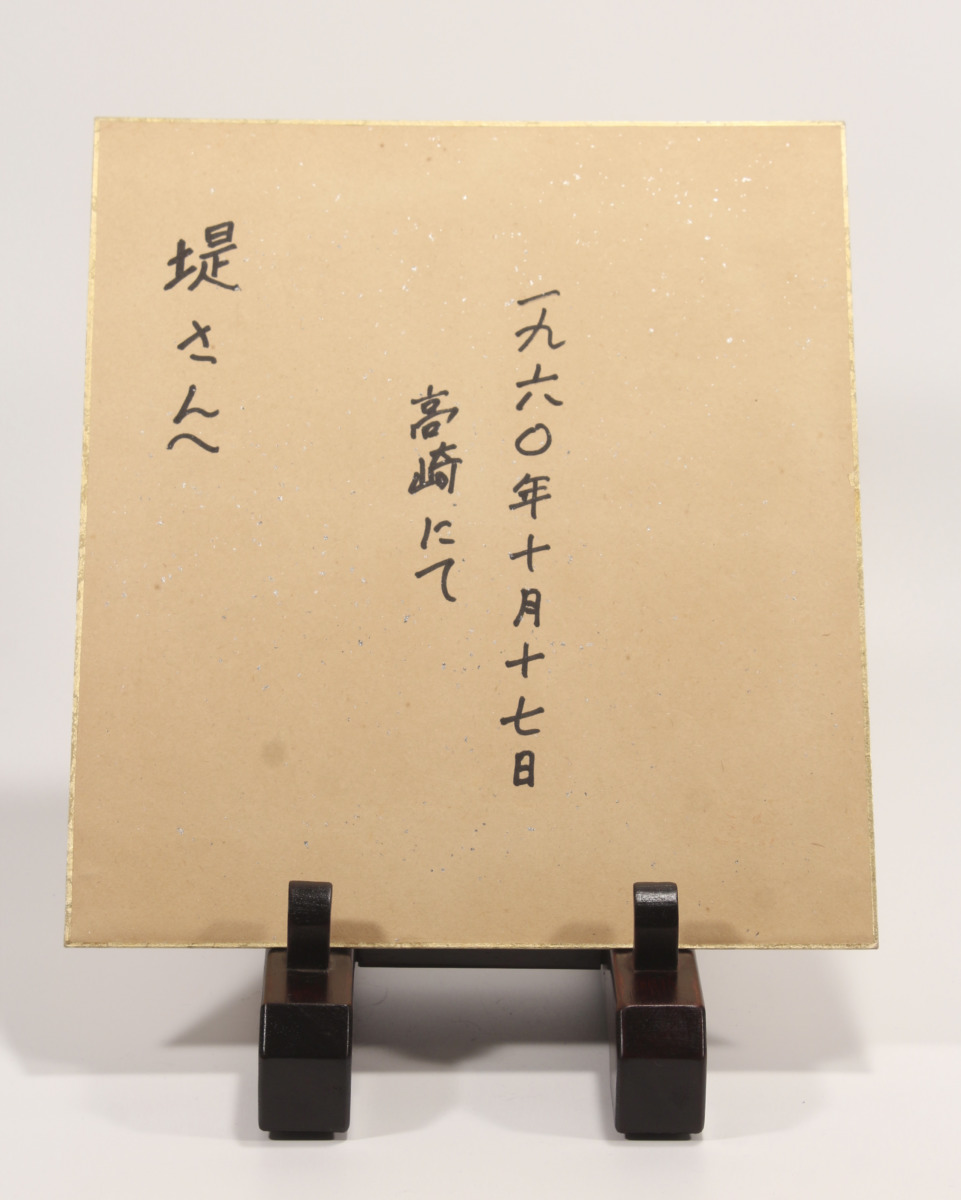 一九六〇年十月十七日
高崎にて
堤さんへ